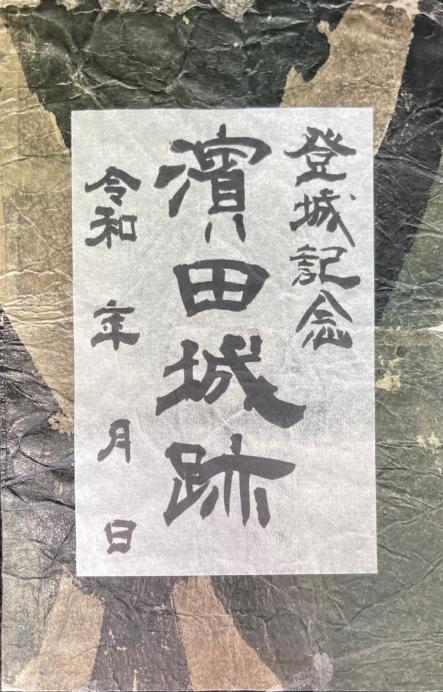 登城記念
濱田城跡
令和 年 月 日